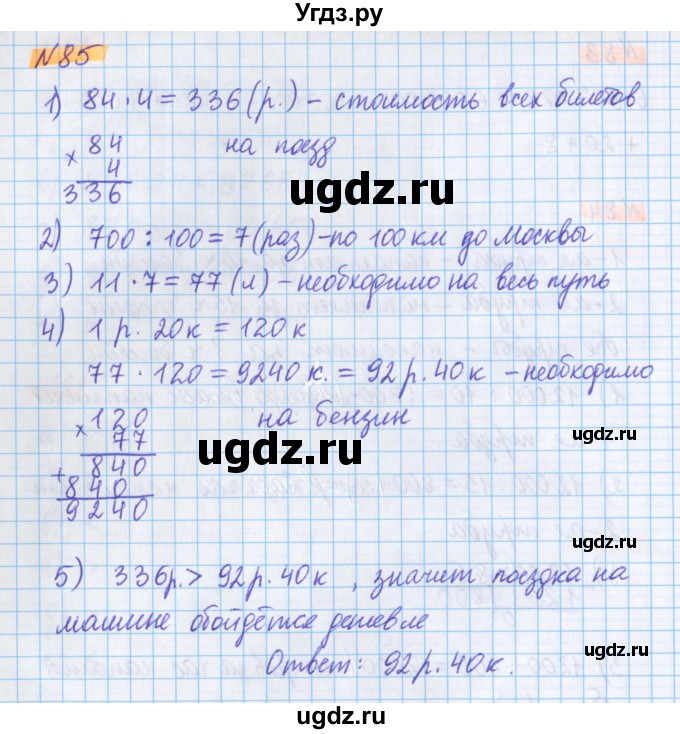 Угдз.ру
№85
1) 84·4=336(р.) – стоимость всех билетов
на поезд
× 84
4
336
ugdz.ru
ugdz.ru
2) 700:100=7(раз)–по 100 км до Москвы
3) 11·7=77(л) – необходимо на весь путь
4) 1 р. 20к = 120к
77·120=9240к.=92р.40к – необходимо
на бензин
× 120
77
+ 840
840
9240
ugdz.ru
ugdz.ru
5) 336р.>92р.40к, значит поездка на
машине обойдётся дешевле
Ответ: 92р.40к.
ugdz.ru